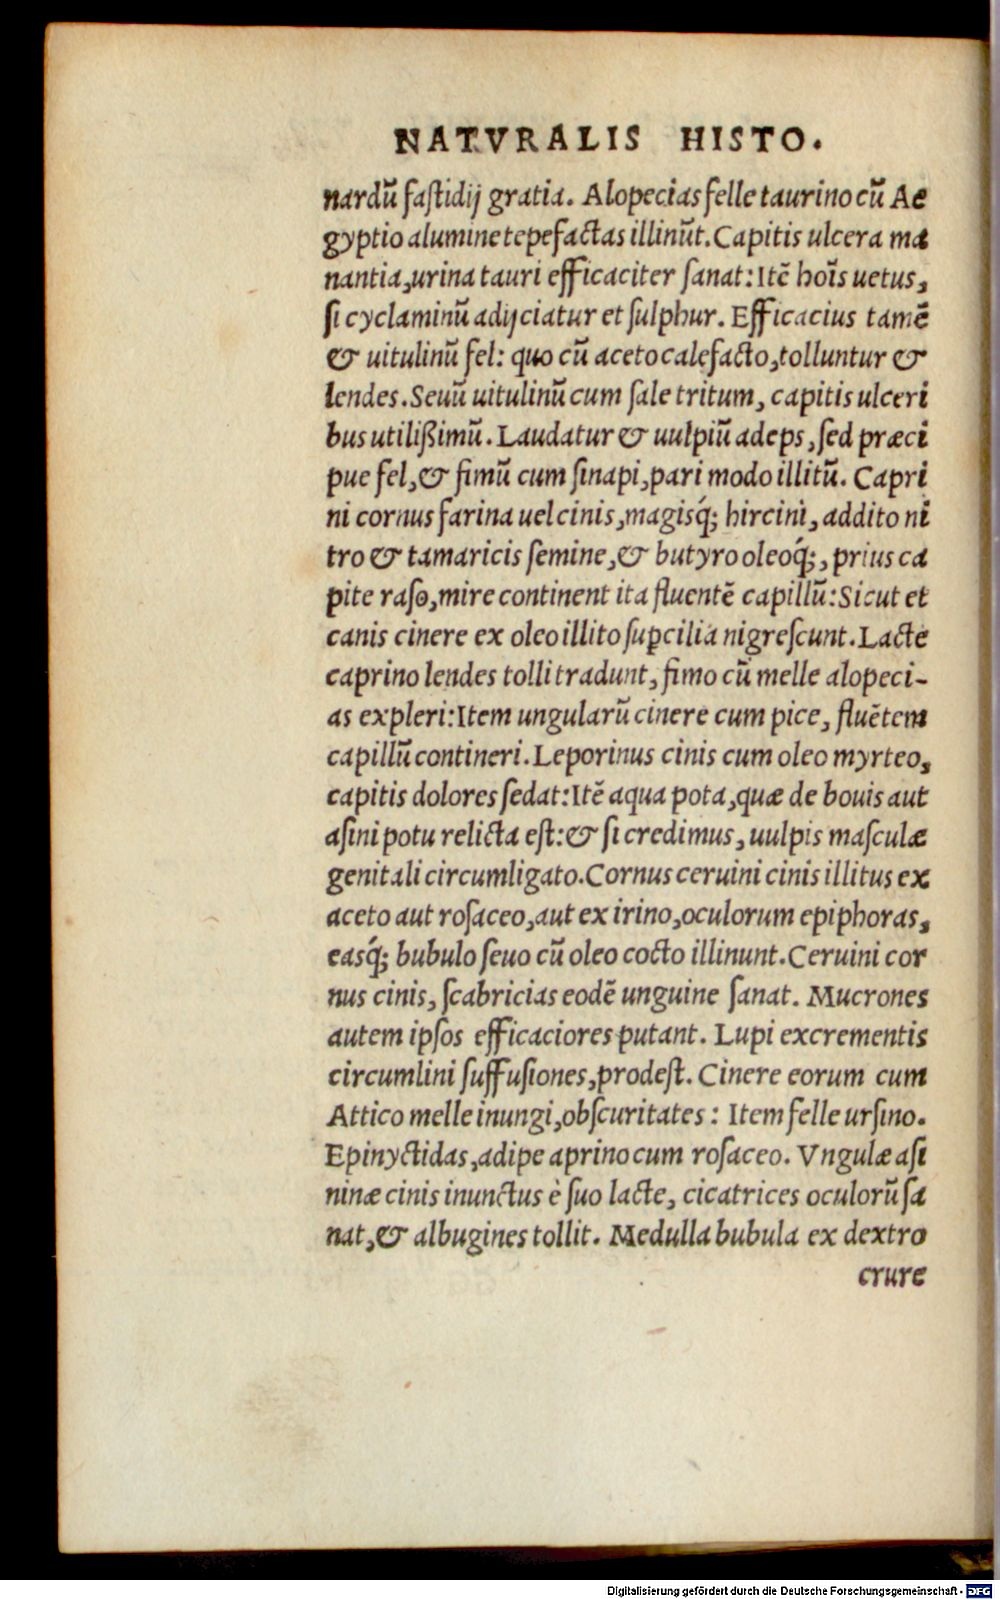 NATVRALIS HISTO.
nardū fastidij gratia. Alopecias felle taurino cū Ae
gyptio alumine tepefactas illinūt. Capitis ulcera ma
nantia, urina tauri efficaciter sanat: Itē hoīs uetus,
si cyclaminū adijciatur et sulphur. Efficacius tamē
& uitulinū fel: quo cū aceto calefacto, tolluntur &
lendes. Seuū uitulinū cum sale tritum, capitis ulceri
bus utilißimū. Laudatur & uulpiū adeps, sed præci
pue fel, & fimū cum sinapi, pari modo illitū. Capri
ni cornus farina uel cinis, magisq́; hircini, addito ni
tro & tamaricis semine, & butyro oleoq́;, prius ca
pite raso, mire continent ita fluentē capillū: Sicut et
canis cinere ex oleo illito suꝑcilia nigrescunt. Lacte
caprino lendes tolli tradunt, fimo cū melle alopeci-
as expleri: Item ungularū cinere cum pice, fluētem
capillū contineri. Leporinus cinis cum oleo myrteo,
capitis dolores sedat: Itē aqua pota, quæ de bouis aut
asini potu relicta est: & si credimus, uulpis masculæ
genitali circumligato. Cornus ceruini cinis illitus ex
aceto aut rosaceo, aut ex irino, oculorum epiphoras,
easq́; bubulo seuo cū oleo cocto illinunt. Ceruini cor
nus cinis, scabricias eodē unguine sanat. Mucrones
autem ipsos efficaciores putant. Lupi excrementis
circumlini suffusiones, prodest. Cinere eorum cum
Attico melle inungi, obscuritates: Item felle ursino.
Epinyctidas, adipe aprino cum rosaceo. Vngulæ asi
ninæ cinis inunctus è suo lacte, cicatrices oculorū sa
nat, & albugines tollit. Medulla bubula ex dextro
crure
Digitalisierung gefördert durch die Deutsche Forschungsgemeinschaft - DFG